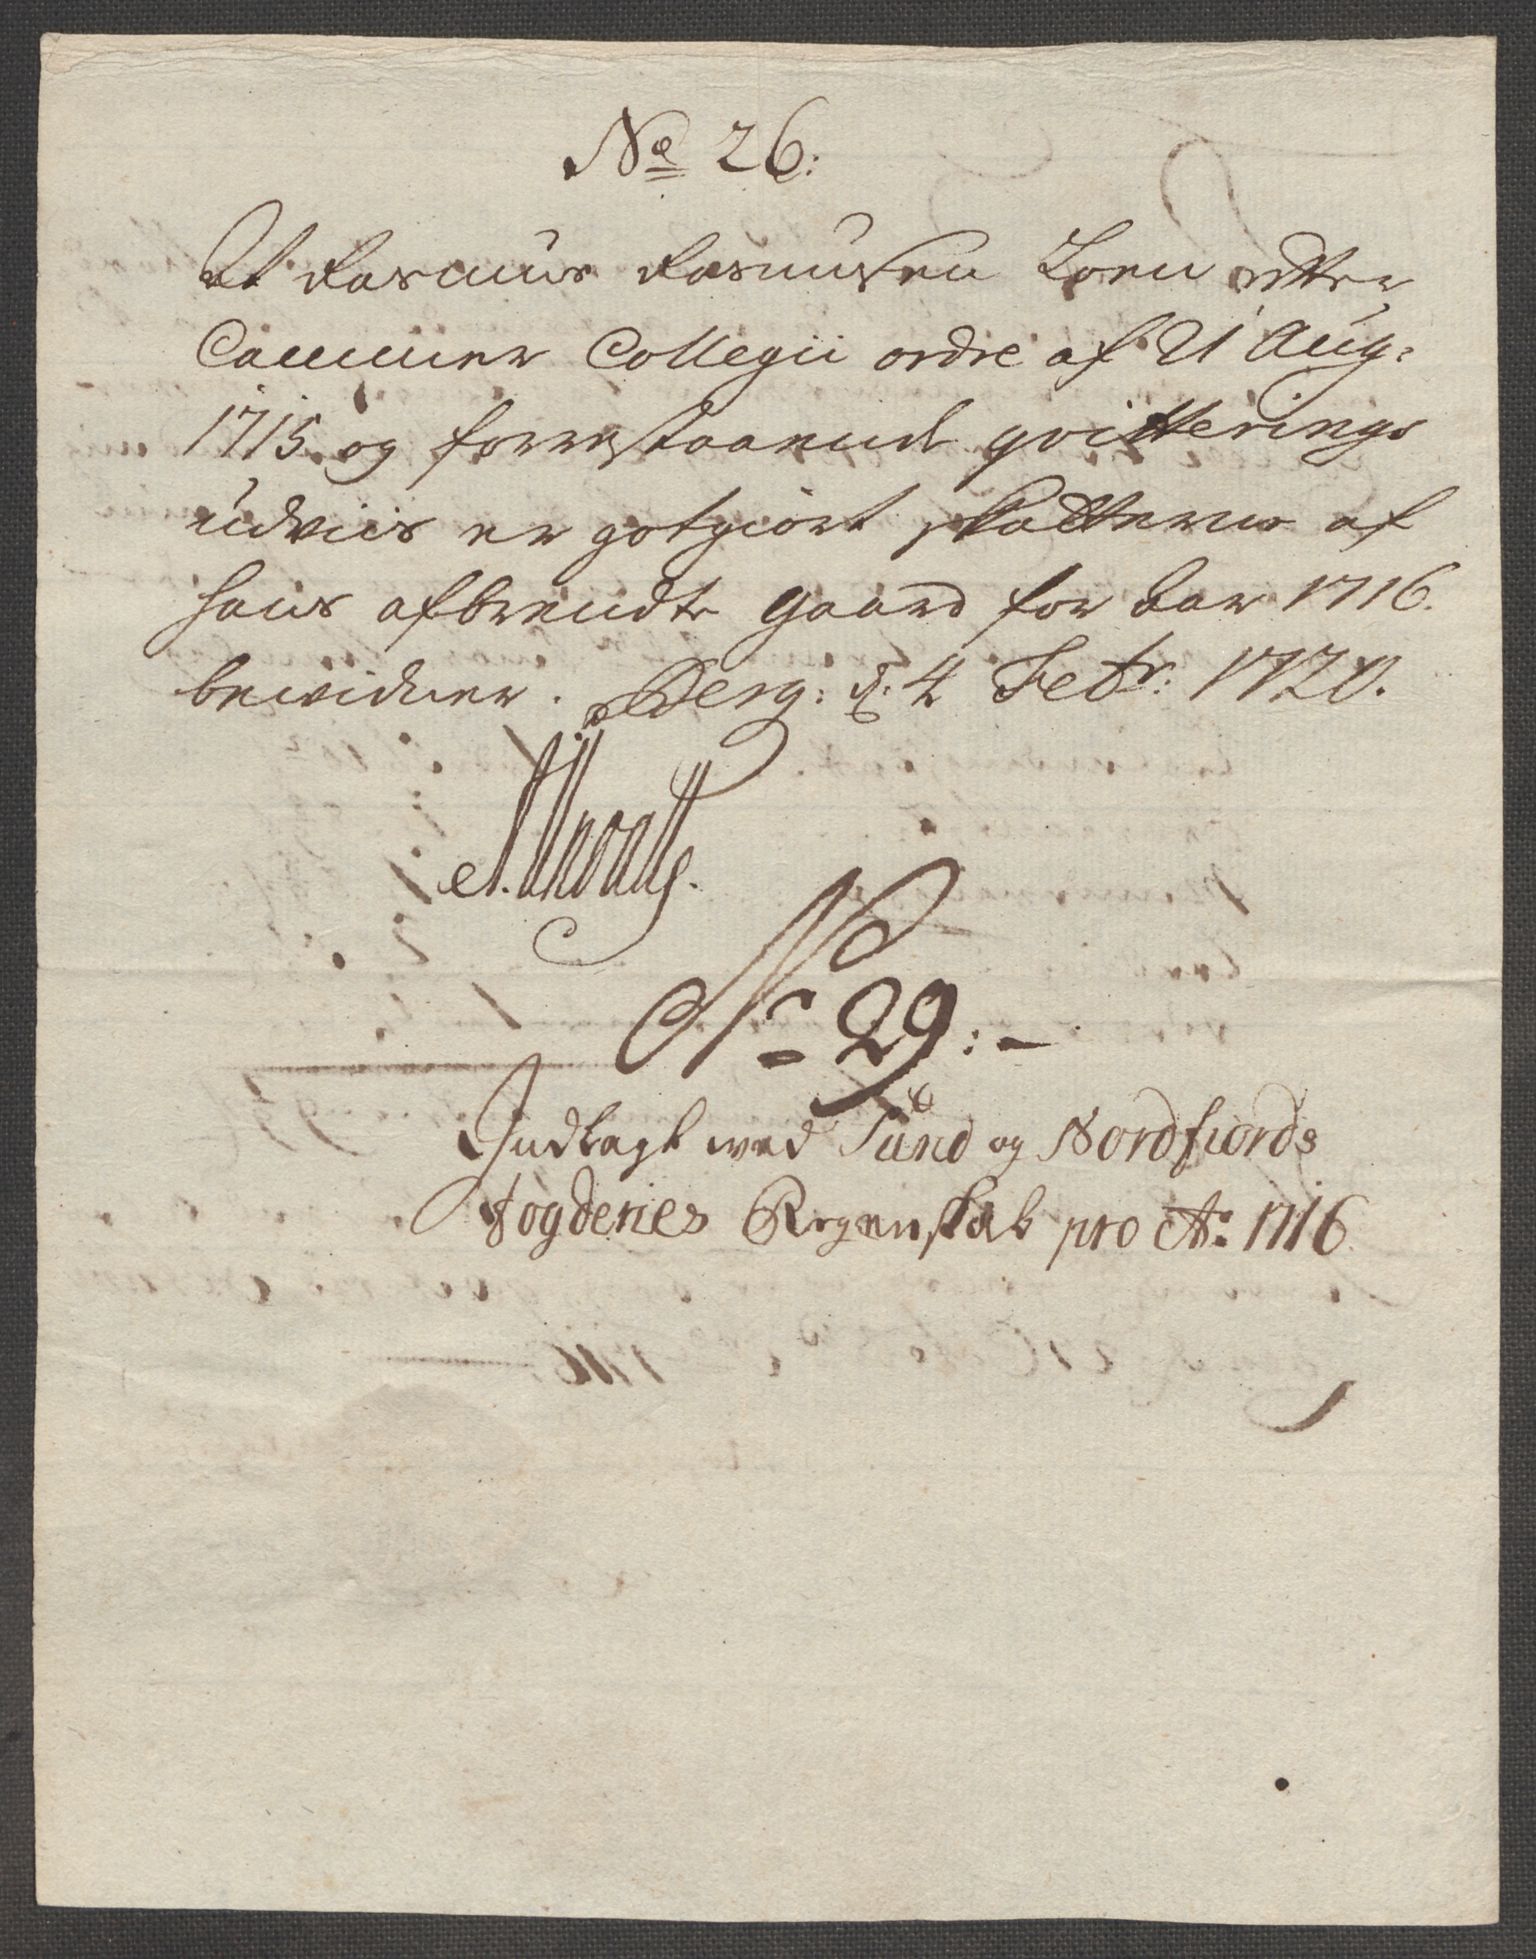 No 26:
At Rasmus Rasmusen Loen effter
Cammer Collegii ordre af 21 Aug:
1715 og forrestaaende qvitterings
udviis er gotgiort skatterne af
hans afbrendte gaard for Aar 1716.
bevidner. Berg: d: 4 Febr: 1720.
No 29:-
Indlagt wed Sund og Nordfiords
Fogderies Regenskab pro Ao: 1716